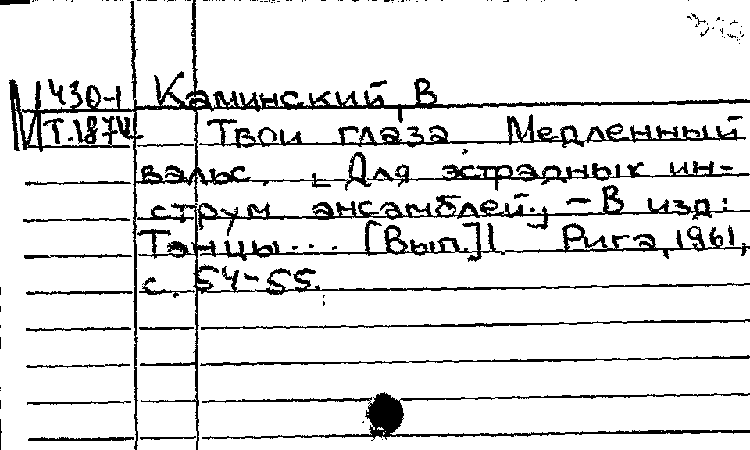 М 430-1 Каминский, В
Т.1874 Твои глаза. Медленный
вальс. [Для эстрадных ин-
струм ансамблей.] — В изд:
Танцы... [Вып.] 1. Рига, 1961,
с. 54-55.